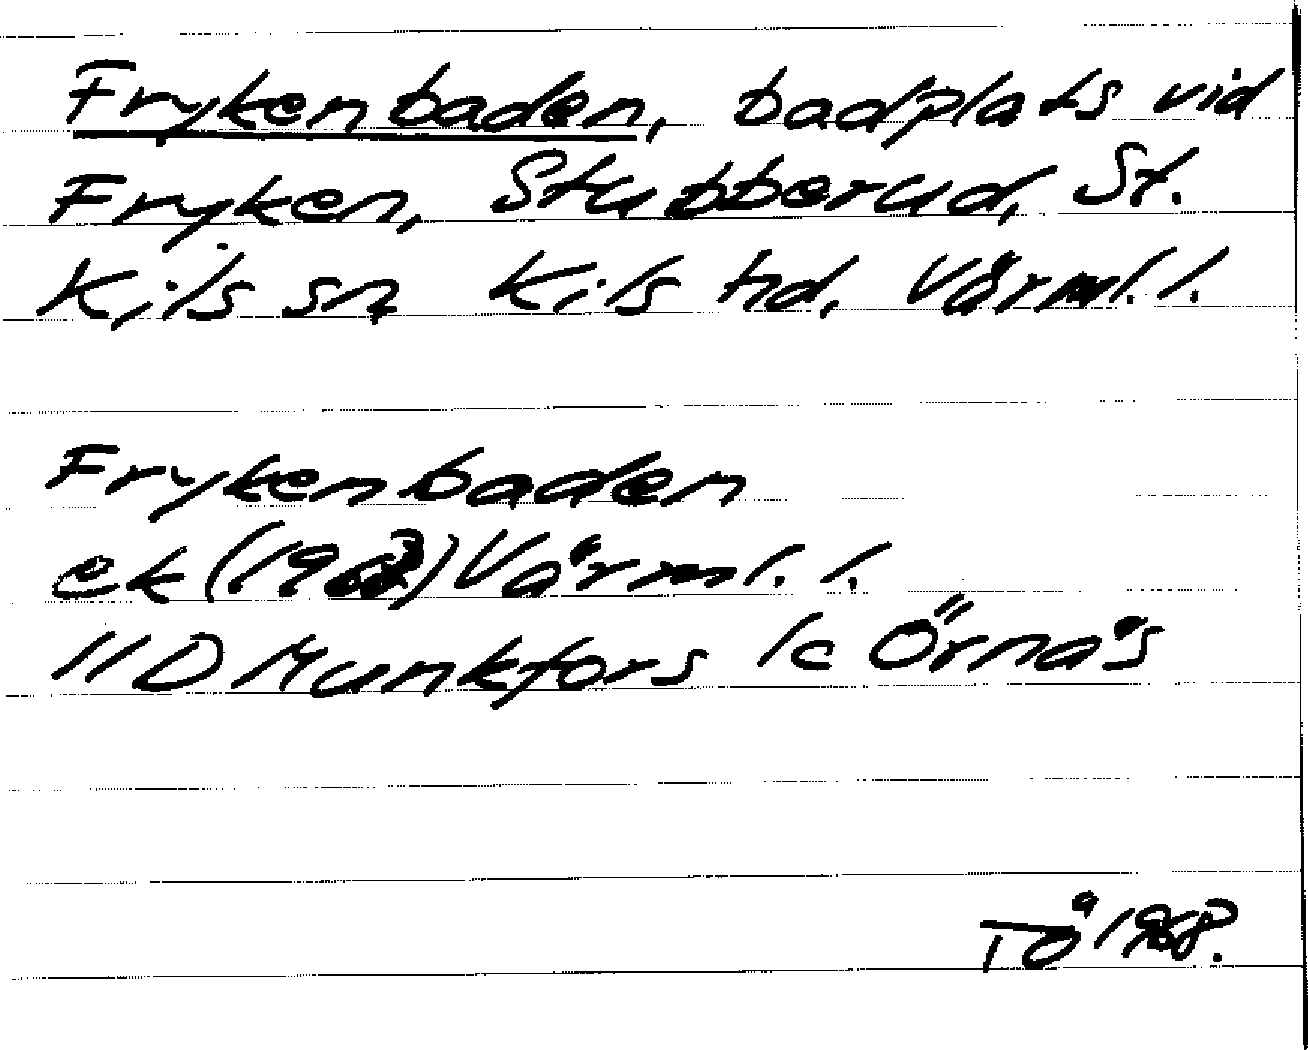 Frykenbaden, badplats vid
Fryken, Stubberud, St.
Kils sn Kils hd, Värml. l.
Frykenbaden
ek Värml. l.
11D Munkfors 1c Örnäs
TÖ 1968.